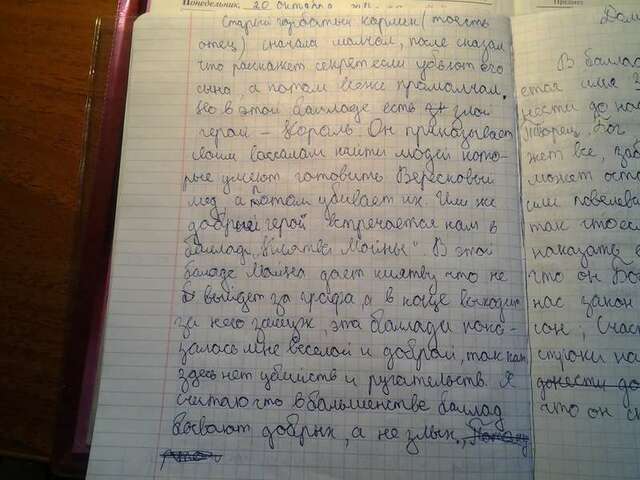 Понедельник, 20 октября
Старый горбатый карлик (тоесть
отец) сначала молчал, после сказал
что раскажет секрет если убьют его
сына, а потом всёже промолчал.
Но в этой балладе есть злой
герой - Король. Он приказывает
своим вассалам найти людей кото-
рые умеют готовить Вересковый
мёд, а потом убивает их. Или же
добрый герой встречается нам в
балладе "Клятва Мойны" В этой
баладе Мойна дает клятву что не
выйдет за графа, а в конце выходит
за него замуж, эта баллада пока-
залась мне веселой и доброй, так как
здесь нет убийств и ругательств. Я
считаю что в бальшенстве баллад
бывают добрых, а не злых.,
В баллад
ется имя
ности до на
Творец, Бог
жет все, заб
может оста
или повелева
так что
наказать
что он Бо
нас закон
он; Счаст
строки на
донести до
что он с